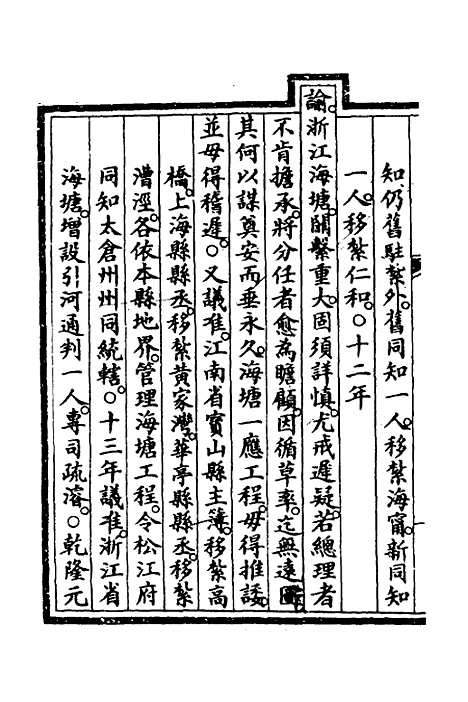 知仍舊駐紮外。舊同知一人。移紮海甯。新同知
一人。移紮仁和。○十二年
諭。浙江海塘。關繫重大。固須詳慎。尤戒遲疑。若總理者
不肯擔承。將分任者愈為瞻顧。因循草率。迄無遠圖
其何以謀奠安而垂永久。海塘一應工程。毋得推諉。
並毋得稽遲。○又議准。江南省寶山縣主簿。移紮高
橋。上海縣縣丞。移紮黃家灣。華亭縣縣丞。移紮
漕涇。各依本縣地界。管理海塘工程。令松江府
同知太倉州州同統轄。○十三年議准。浙江省
海塘增設引河通判一人。專司疏濬。○乾隆元